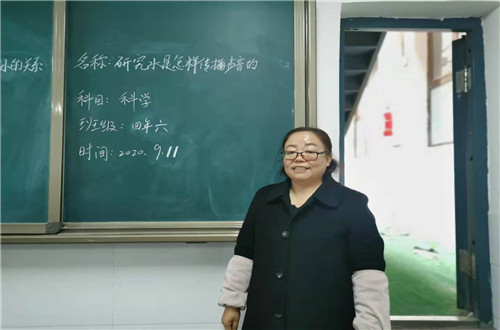 水的关系
名称：研究水是怎样传播声音的
科目：科学
班级：四年六
时间：2020.9.11